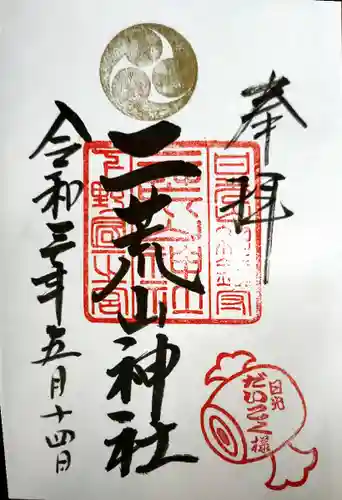 奉拝
二荒山神社
令和三年五月十四日
日光
だいこく様